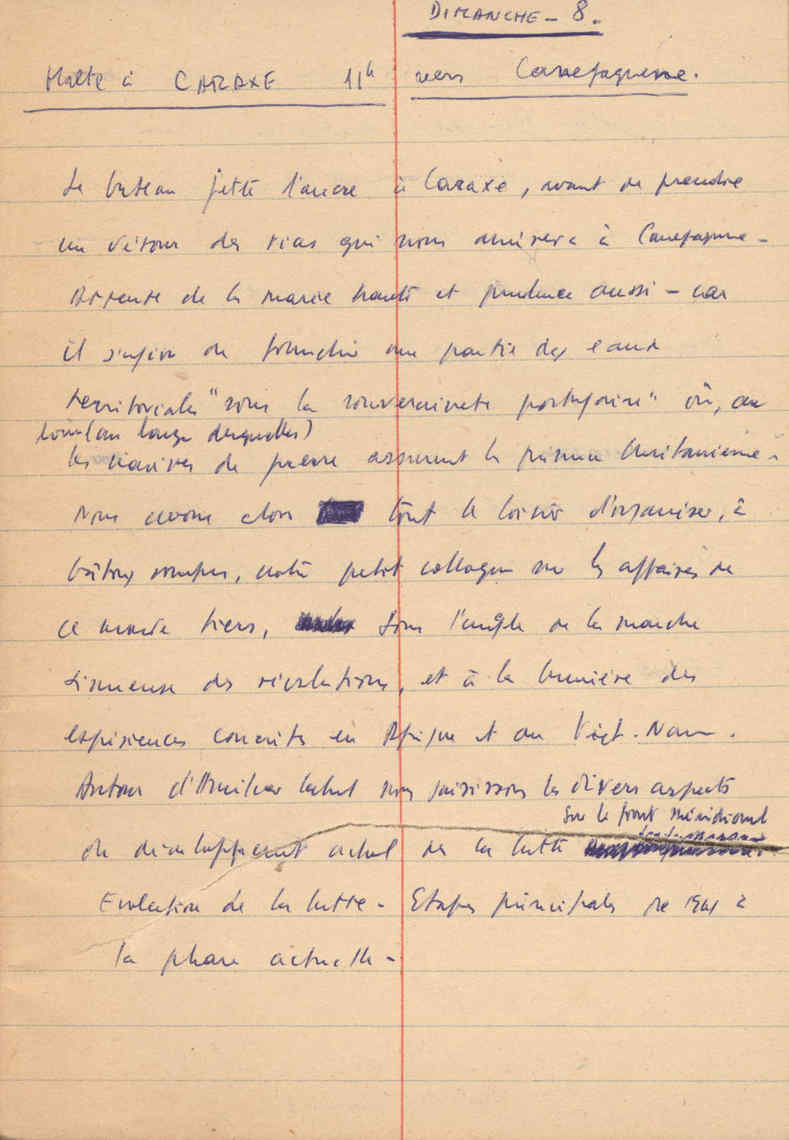 DIMANCHE - 8.
Halte à CARAXE 11h vers Canefaquene.
Le bateau jette l'ancre à Caraxe, avant de prendre
un détour des rias qui nous amènera à Canefaquene -
Attente de la marée haute et prudence aussi - car
il s'agira de franchir une partie des eaux
territoriales "sous la souveraineté portugaise" où, au
(au large desquelles)
les navires de guerre assurent la présence lusitanienne.
Nous avons alors tout le loisir d'organiser, à
bâtons rompus, notre petit colloque sur les affaires de
ce monde tiers, sous l'angle de la marche
sinueuse des révolutions, et à la lumière des
expériences concrètes en Afrique et au Viet-Nam.
Autour d'Amilcar Cabral nous saisissons les divers aspects
sur le front méridional
du développement actuel de la lutte
Evolution de la lutte - Etapes principales de à
la phase actuelle -